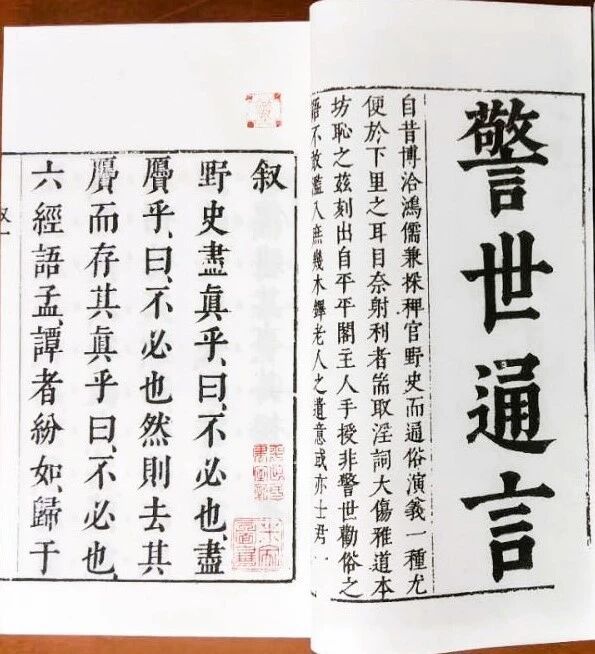 警世通言
自昔博洽鴻儒兼採稗官野史而通俗演義一種尤
便於下里之耳目奈射利者耑取淫詞大傷雅道本
坊恥之茲刻出自平平閣主人手授非警世勸俗之
語不敢濫入庶幾木鐸老人之遺意或亦士君
叙
野史盡眞乎、曰、不必也、盡
贋乎、曰、不必也然則去其
贋而存其眞乎、曰、不必也、
六經語孟、譚者紛如、歸于